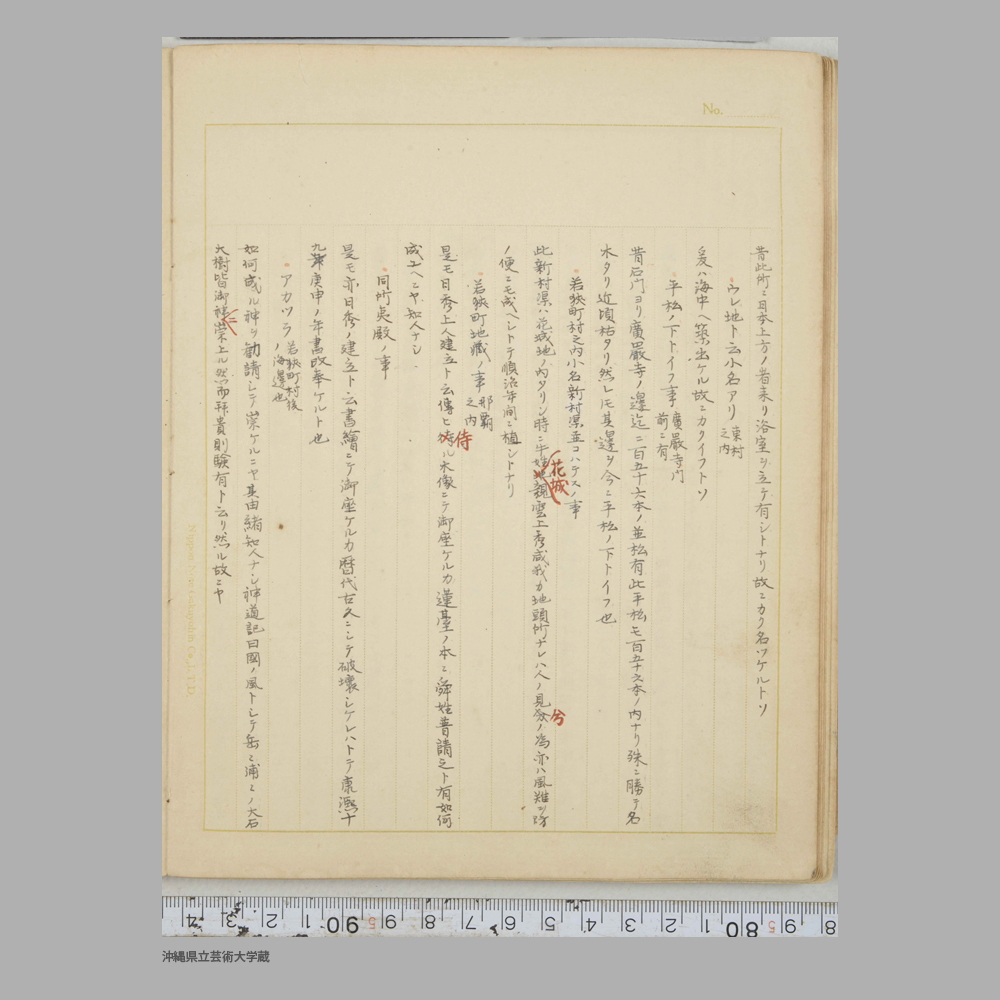 No.
昔此所ニ日本上方ノ者来リ浴室ヲ立テ有シトナリ故ニカク名ツケルトソ
ウレ地ト云小名アリ 東村之内
爰ハ海中ヘ築出ケル故ニカクイフトソ
平松ノ下トイフ事 廣嚴寺門前ニ有
昔石門ヨリ廣嚴寺ノ邊迄ニ百五十六本ノ並松有此平松モ百五十六本ノ内ナリ殊ニ勝テ名
木タリ近頃枯タリ然レモ其邊ヲ今ニ平松ノ下トイフ也
若狹町村之内小名新村渠並コハテスノ事
此新村渠ハ花城地ノ内タリシ時ニ牛姓地親雲上秀盛我カ地頭所ナレハ人ノ見分ノ為亦ハ風難ヲ防
花城
兮
ノ便ニモ成ヘシトテ順治年間ニ植シトナリ
若狹町地藏ノ事 那覇之内
是モ日秀上人建立ト云傳ヒ待ル木像ニテ御座ケルカ蓮臺ノ本ニ舜姓普請之ト有如何
侍
成士ヘニヤ知人ナシ
同所夷殿ノ事
是モ亦日秀ノ建立ト云書繪ニテ御座ケルカ暦代古久ニシテ破壞シケレハトテ康熙十
九年庚申ノ年書改奉ケルト也
アカツラ 若狹町村後ノ海邊也
如何成ル神ヲ勧請シテ崇ケルニヤ其由緒知人ナシ神道記曰國ノ風トシテ岳ミ浦ミノ大石
大樹皆御神ニ崇上ル然而拜貴則験有ト云リ然ル故ニヤ
4 3 2 1 90 9 8 7 6 5 4 3 2 1 80 9 8
沖縄県立芸術大学蔵